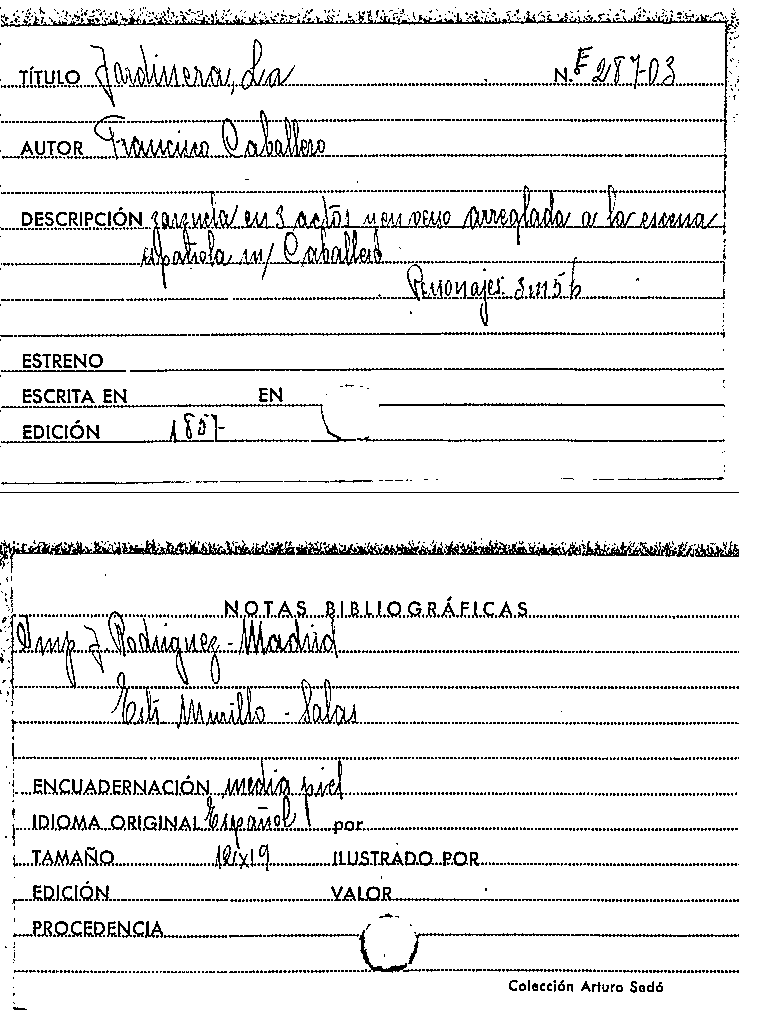 TÍTULO Jardinera, La N.º E 287-03
AUTOR Francisco Caballero
DESCRIPCIÓN zarzuela en 3 actos y en verso arreglada a la escena
española m/ Caballero
Personajes 3 m 5 h
ESTRENO
ESCRITA EN EN
EDICIÓN 1857
NOTAS BIBLIOGRÁFICAS
Imp J. Rodriguez - Madrid
Murillo - Salas
ENCUADERNACIÓN media piel
IDIOMA ORIGINAL Español por
TAMAÑO x19 ILUSTRADO POR
EDICIÓN VALOR
PROCEDENCIA
Colección Arturo Sedó